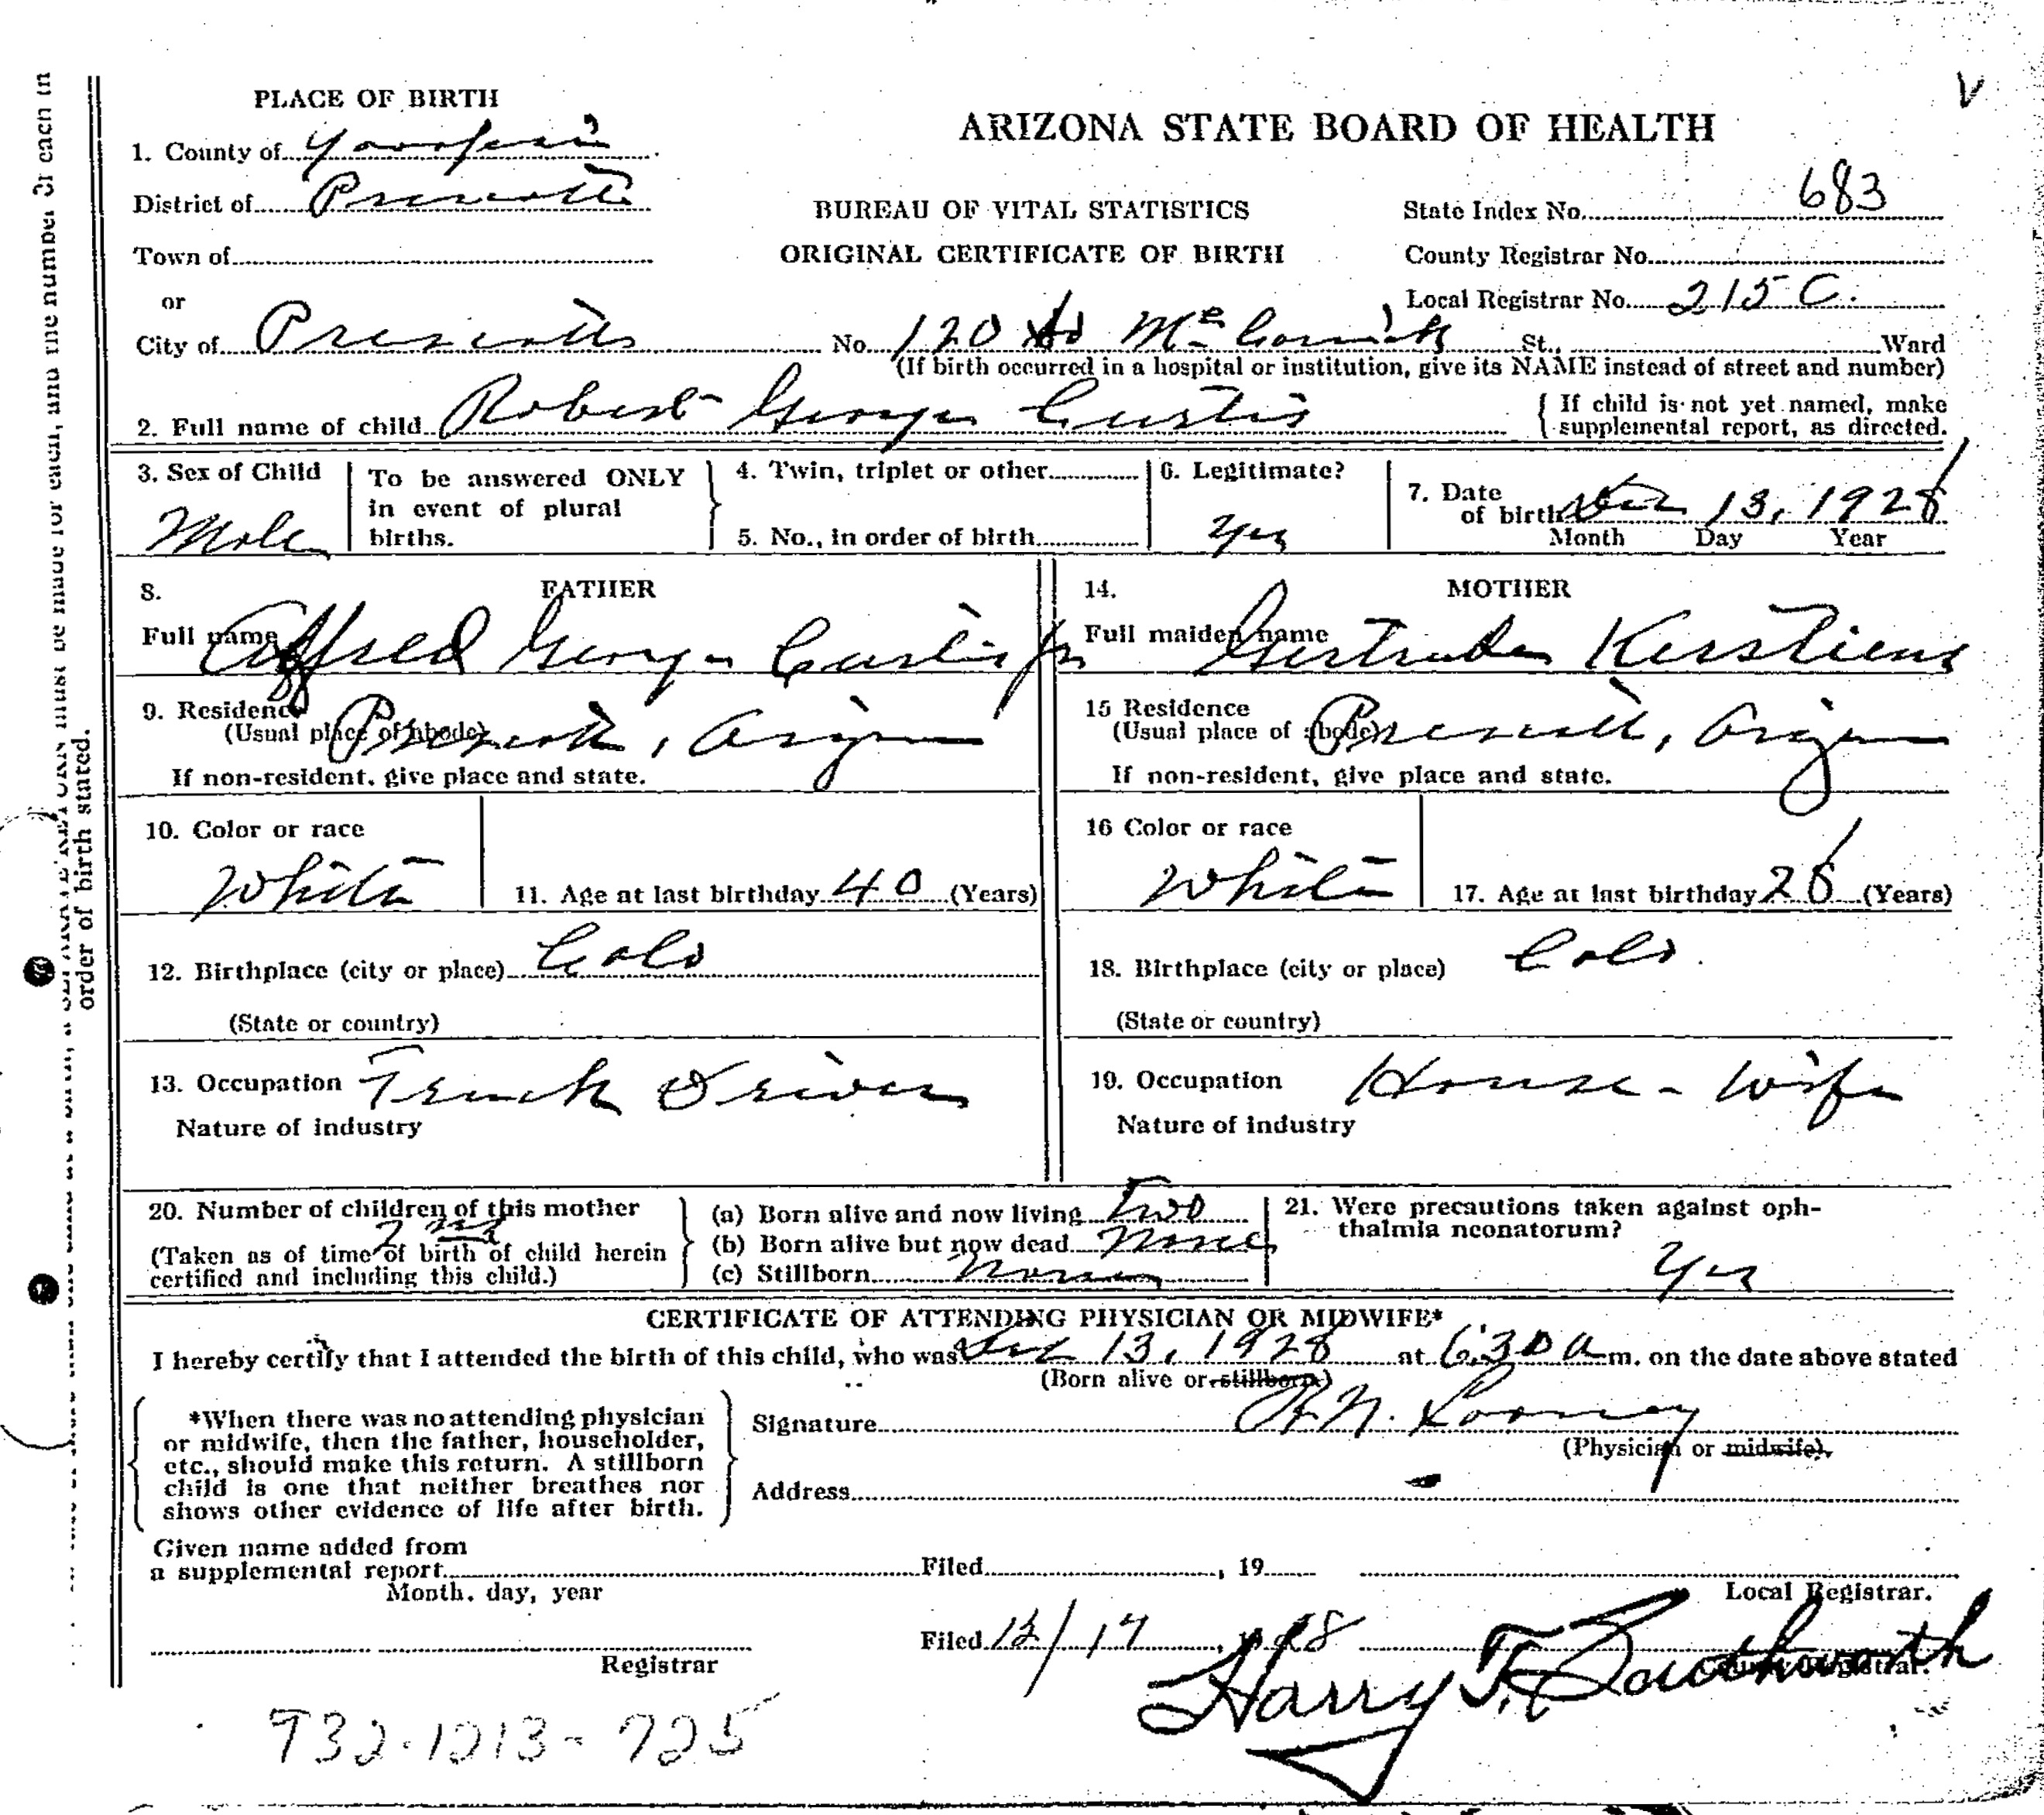 PLACE OF BIRTH
ARIZONA STATE BOARD OF HEALTH
1. County of Yavapai
District of Prescott
BUREAU OF VITAL STATISTICS
State Index No. 683
Town of
ORIGINAL CERTIFICATE OF BIRTH
County Registrar No.
or
Local Registrar No. 215 C.
City of Prescott No. 120 McCormick St., Ward
(If birth occurred in a hospital or institution, give its NAME instead of street and number)
2. Full name of child Robert George Curtis { If child is not yet named, make supplemental report, as directed.
3. Sex of Child Male
To be answered ONLY in event of plural births.
4. Twin, triplet or other
5. No., in order of birth
6. Legitimate? Yes
7. Date of birth Dec 13, 1928
Month Day Year
8. FATHER
Full name Alfred George Curtis Jr
9. Residence Prescott, Arizona
(Usual place of abode)
If non-resident, give place and state.
10. Color or race White
11. Age at last birthday 40 (Years)
12. Birthplace (city or place) Colo
(State or country)
13. Occupation Truck Driver
Nature of industry
14. MOTHER
Full maiden name Gertrude Kerstiens
15 Residence Prescott, Arizona
(Usual place of abode)
If non-resident, give place and state.
16 Color or race White
17. Age at last birthday 28 (Years)
18. Birthplace (city or place) Colo.
(State or country)
19. Occupation House-Wife
Nature of industry
20. Number of children of this mother 2nd
(Taken as of time of birth of child herein certified and including this child.)
(a) Born alive and now living Two
(b) Born alive but now dead None
(c) Stillborn None
21. Were precautions taken against ophthalmia neonatorum? Yes
CERTIFICATE OF ATTENDING PHYSICIAN OR MIDWIFE*
I hereby certify that I attended the birth of this child, who was Dec 13, 1928 at 6:30 a m. on the date above stated
(Born alive or stillborn)
*When there was no attending physician
or midwife, then the father, householder,
etc., should make this return. A stillborn
child is one that neither breathes nor
shows other evidence of life after birth.
Signature Looney
(Physician or midwife).
Address
Given name added from
a supplemental report
Month, day, year
Filed , 19
Local Registrar.
Registrar
Filed 12/17, 1928 Harry T. Southworth
County Registrar.
932-1213-725
order of birth stated.